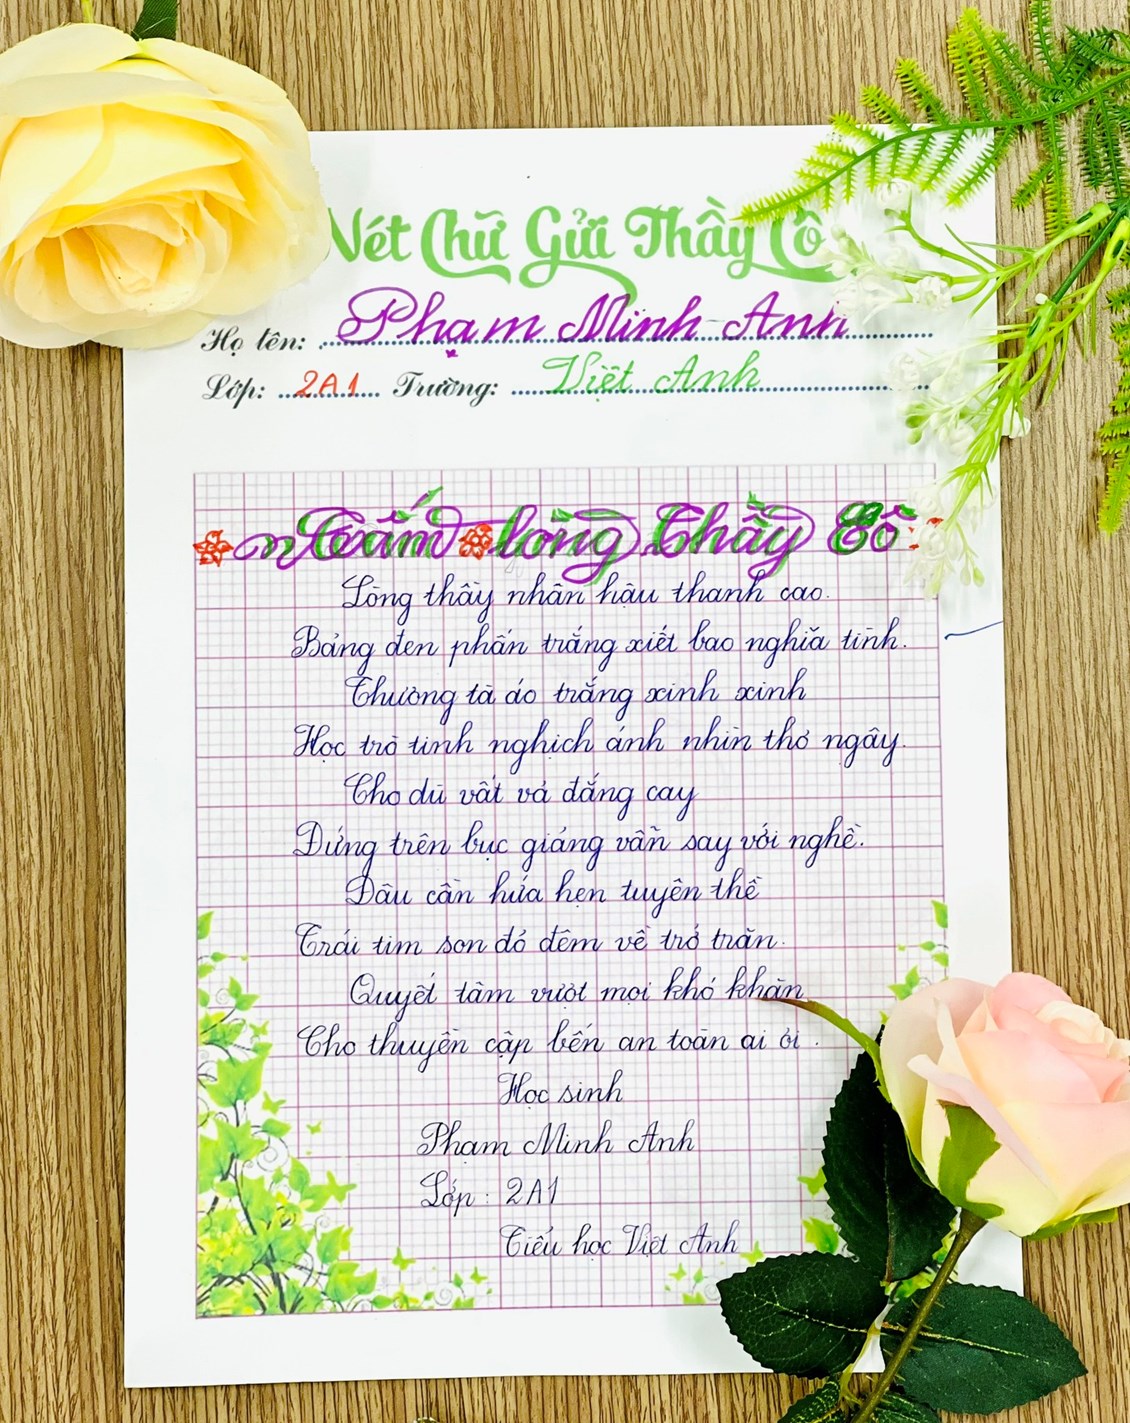 Nét Chữ Gửi Thầy Cô
Họ tên: Phạm Minh Anh
Lớp: 2A1 Trường: Việt Anh
Tấm lòng Thầy Cô
Lòng thầy nhân hậu thanh cao.
Bảng đen phấn trắng xiết bao nghĩa tình.
Thương tà áo trắng xinh xinh
Học trò tinh nghịch ánh nhìn thơ ngây.
Cho dù vất vả đắng cay
Đứng trên bục giảng vẫn say với nghề.
Đâu cần hứa hẹn tuyên thề
Trái tim son đỏ đêm về trở trăn.
Quyết tâm vượt mọi khó khăn
Cho thuyền cập bến an toàn ai ơi.
Học sinh
Phạm Minh Anh
Lớp: 2A1
Tiểu học Việt Anh